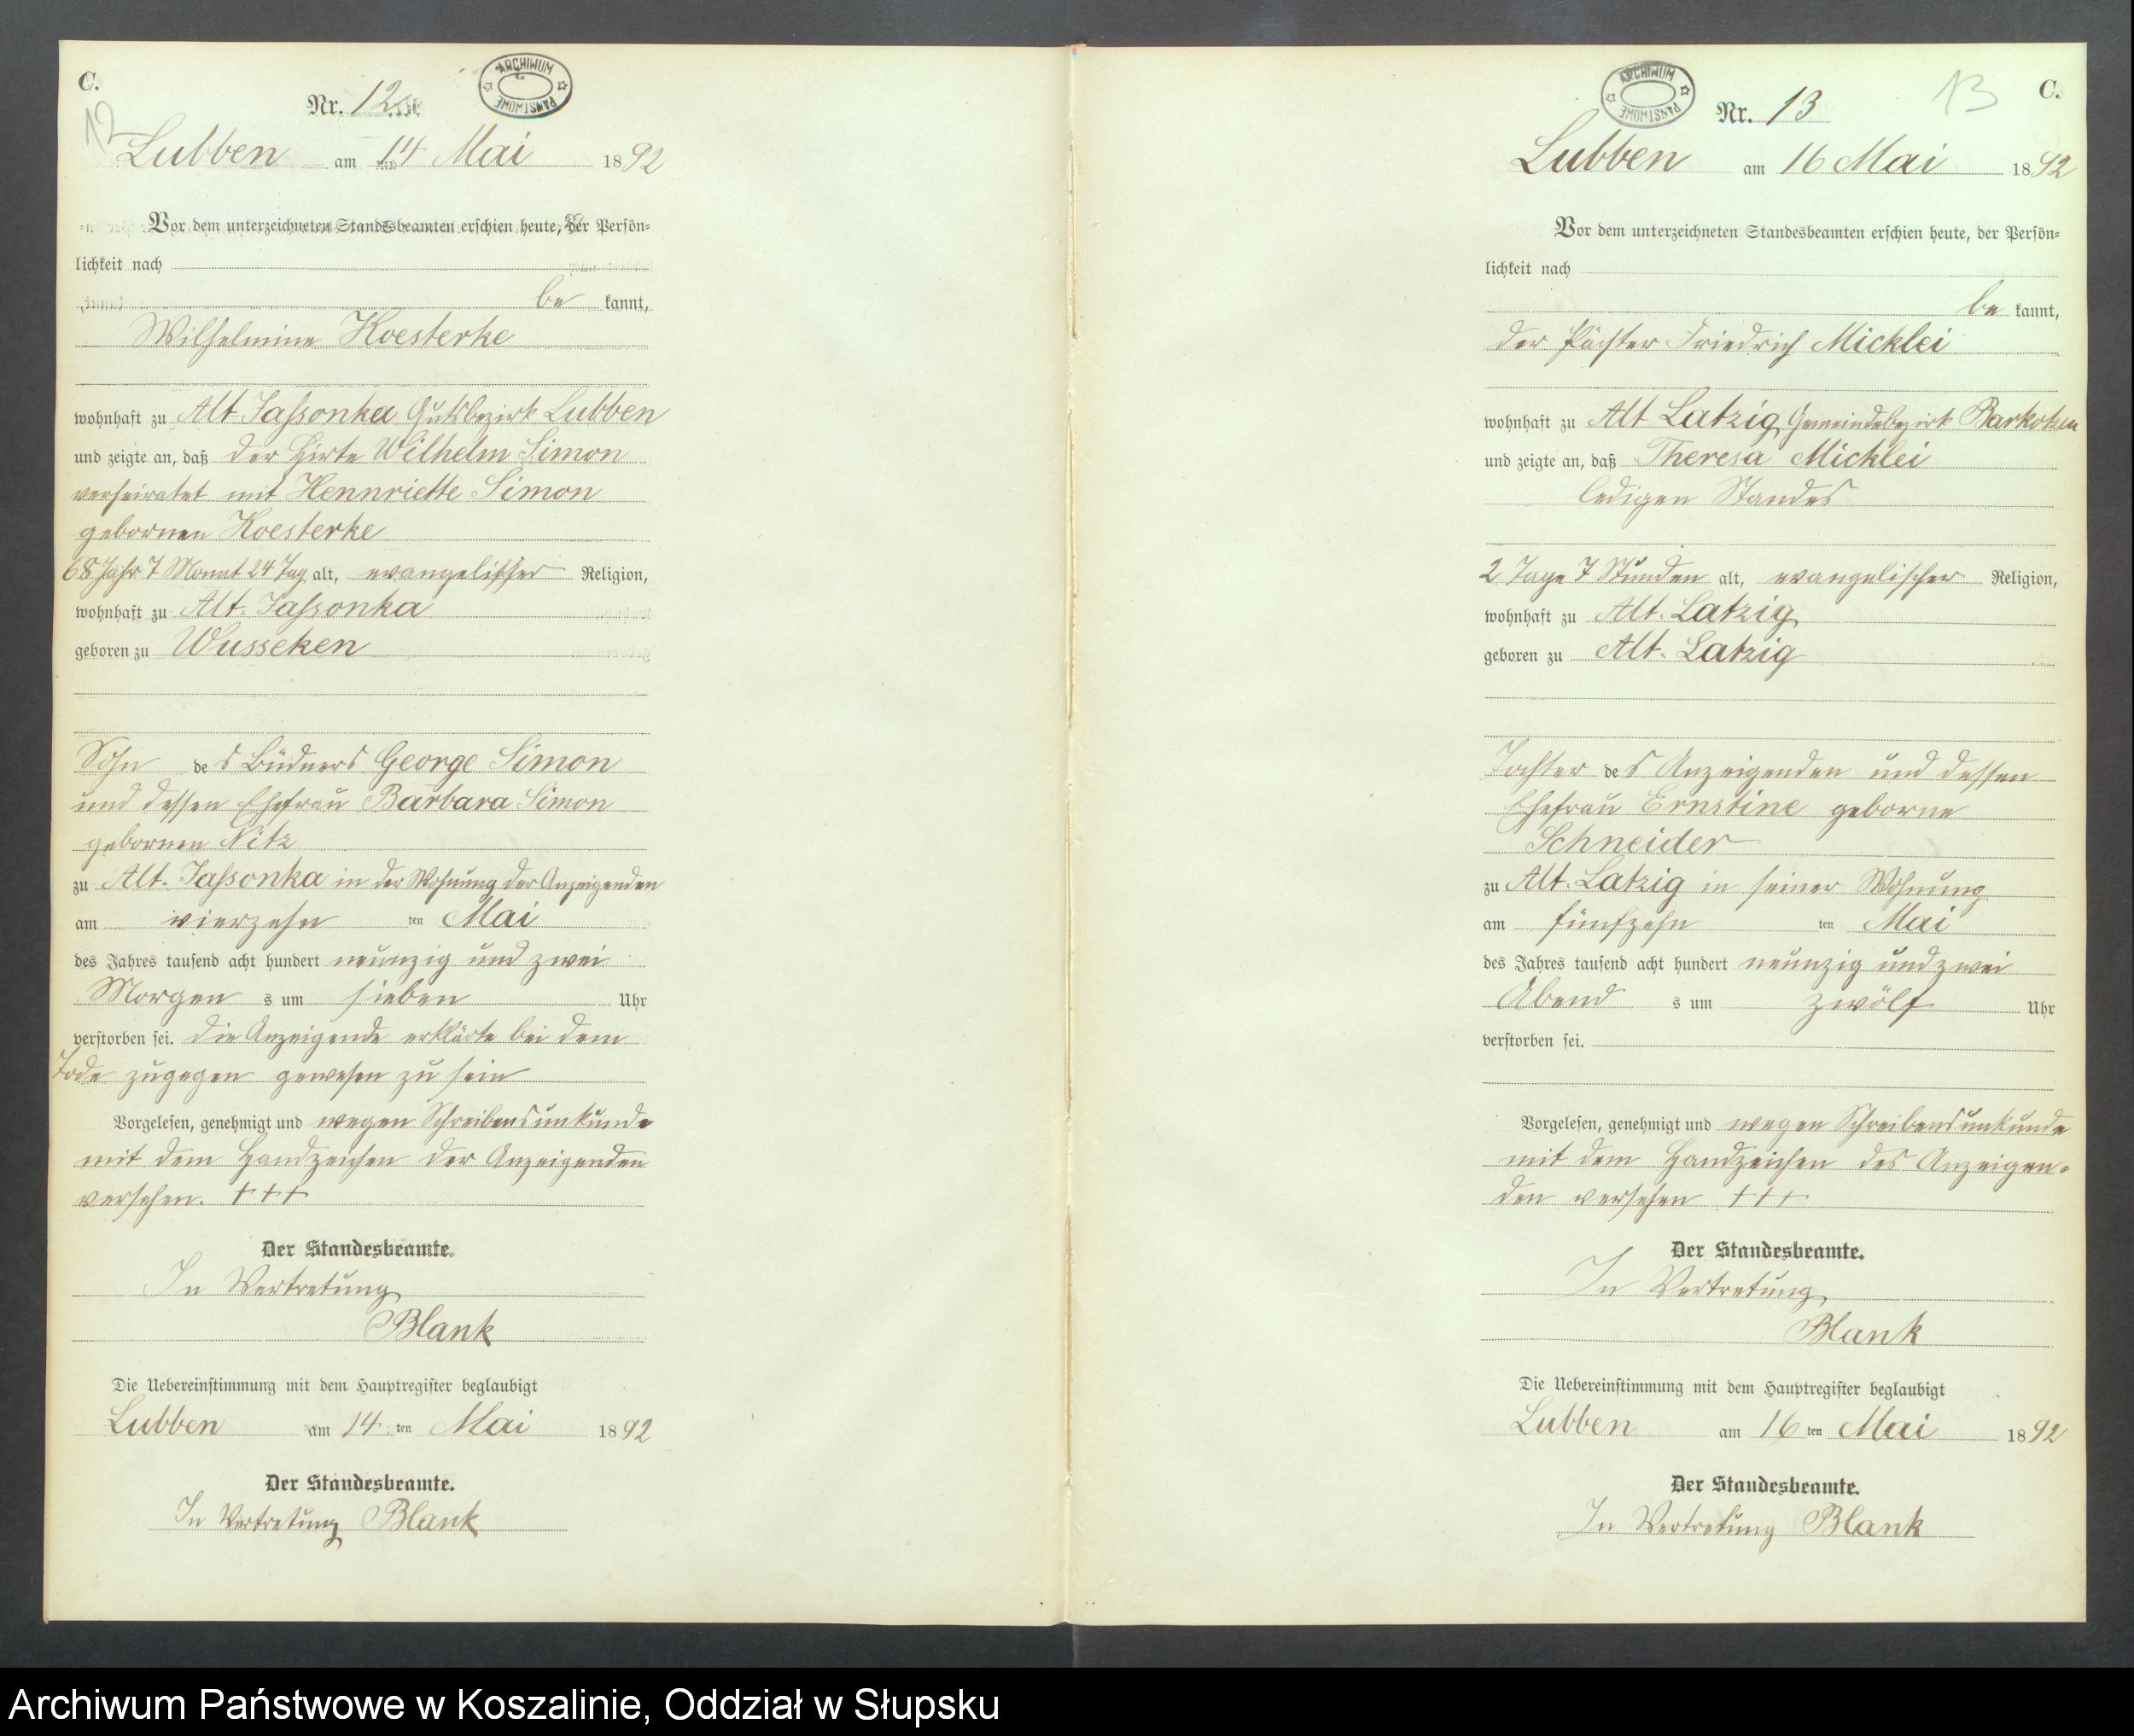 C.
12
Nr. 12
ARCHIWUM PAŃSTWOWE
Lubben am 14 Mai 1892
Vor dem unterzeichneten Standesbeamten erschien heute, der Persön=
lichkeit nach
be kannt,
Wilhelmine Koesterke
wohnhaft zu Alt-Jassonka Gutsbezirk Lubben
und zeigte an, daß der Hirte Wilhelm Simon
verheiratet mit Hennriette Simon
gebornen Koesterke
68 Jahr 7 Monat 24 Tag alt, evangelischer Religion,
wohnhaft zu Alt-Jassonka
geboren zu Wusseken
Sohn des Büdners George Simon
und dessen Ehefrau Barbara Simon
gebornen Nitz
zu Alt-Jassonka in der Wohnung der Anzeigenden
am vierzehn ten Mai
des Jahres tausend acht hundert neunzig und zwei
Morgen s um sieben Uhr
verstorben sei. Die Anzeigende erklärte bei dem
Tode zugegen gewesen zu sein
Vorgelesen, genehmigt und wegen Schreibensunkunde
mit dem Handzeichen der Anzeigenden
versehen. +++
Der Standesbeamte.
In Vertretung
Blank
Die Uebereinstimmung mit dem Hauptregister beglaubigt
Lubben am 14 ten Mai 1892
Der Standesbeamte.
In Vertretung Blank
C.
13
Nr. 13
ARCHIWUM PAŃSTWOWE
Lubben am 16 Mai 1892
Vor dem unterzeichneten Standesbeamten erschien heute, der Persön=
lichkeit nach
be kannt,
der Pächter Friedrich Micklei
wohnhaft zu Alt Latzig Gemeindebezirk Barkotzen
und zeigte an, daß Theresa Micklei
ledigen Standes
2 Tage 7 Stunden alt, evangelischer Religion,
wohnhaft zu Alt-Latzig
geboren zu Alt-Latzig
Tochter des Anzeigenden und dessen
Ehefrau Ernstine geborne
Schneider
zu Alt-Latzig in seiner Wohnung
am fünfzehn ten Mai
des Jahres tausend acht hundert neunzig und zwei
Abend s um zwölf Uhr
verstorben sei.
Vorgelesen, genehmigt und wegen Schreibensunkunde
mit dem Handzeichen des Anzeigen=
den versehen +++
Der Standesbeamte.
In Vertretung
Blank
Die Uebereinstimmung mit dem Hauptregister beglaubigt
Lubben am 16 ten Mai 1892
Der Standesbeamte.
In Vertretung Blank
Archiwum Państwowe w Koszalinie, Oddział w Słupsku